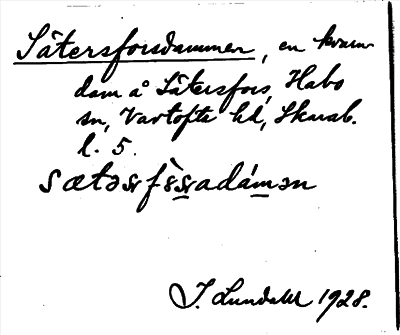 Sätersforsdammen, en kvarn-
dam å Sätersfors, Habo
sn, Vartofte hd, Skarab.
l. 5.
sætəsrfə̀sradámən
I. Lundahl 1928.